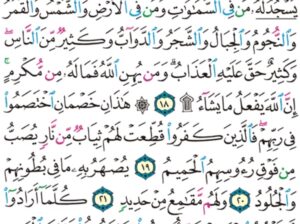 يَسْجُدُ لَهُۥ مَن فِى ٱلسَّمَٰوَٰتِ وَمَن فِى ٱلْأَرْضِ وَٱلشَّمْسُ وَٱلْقَمَرُ
وَٱلنُّجُومُ وَٱلْجِبَالُ وَٱلشَّجَرُ وَٱلدَّوَآبُّ وَكَثِيرٌ مِّنَ ٱلنَّاسِ ۖ
وَكَثِيرٌ حَقَّ عَلَيْهِ ٱلْعَذَابُ ۗ وَمَن يُهِنِ ٱللَّهُ فَمَا لَهُۥ مِن مُّكْرِمٍ ۚ
إِنَّ ٱللَّهَ يَفْعَلُ مَا يَشَآءُ ۩ ١٨ ۞ هَٰذَانِ خَصْمَانِ ٱخْتَصَمُوا۟
فِى رَبِّهِمْ ۖ فَٱلَّذِينَ كَفَرُوا۟ قُطِّعَتْ لَهُمْ ثِيَابٌ مِّن نَّارٍ يُصَبُّ
مِن فَوْقِ رُءُوسِهِمُ ٱلْحَمِيمُ ١٩ يُصْهَرُ بِهِۦ مَا فِى بُطُونِهِمْ
وَٱلْجُلُودُ ٢٠ وَلَهُم مَّقَٰمِعُ مِنْ حَدِيدٍ ٢١ كُلَّمَآ أَرَادُوٓا۟